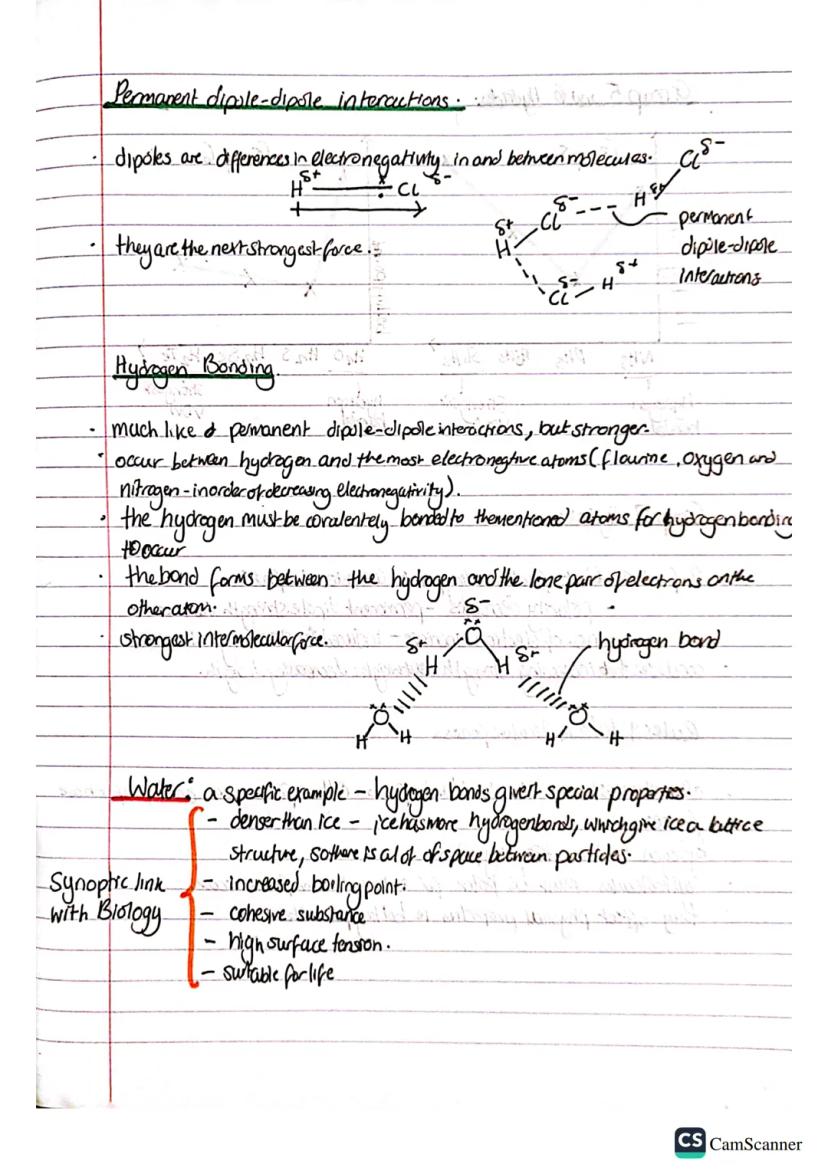 Permanent dipole-dipole interactions.
· dipoles are differences in electronegativity in and between molecules.
Hδ+ Cl δ-
Cl δ-
H δ+
δ+ H Cl δ-
permanent
dipole-dipole
interactions
δ- Cl H δ+
· they are the next strongest force.
Hydrogen Bonding.
· much like permanent dipole-dipole interactions, but stronger.
· occur between hydrogen and the most electronegtive atoms (flourine, oxygen and
nitrogen - in order of decreasing electronegativity).
· the hydrogen must be covalentely bonded to the mentioned atoms for hydrogen bonding
to occur
· the bond forms between the hydrogen and the lone pair of electrons on the
other atom.
· strongest intermolecular force.
δ-
O
δ+ H H δ+
hydrogen bond
O O
H H H H
Water: a specific example - hydrogen bonds give it special properties.
- denser than ice - ice has more hydrogen bonds, which give ice a lattice
structure, so there is a lot of space between particles.
Synoptic link
with Biology
- increased boiling point.
- cohesive substance
- high surface tension.
- suitable for life
CS CamScanner